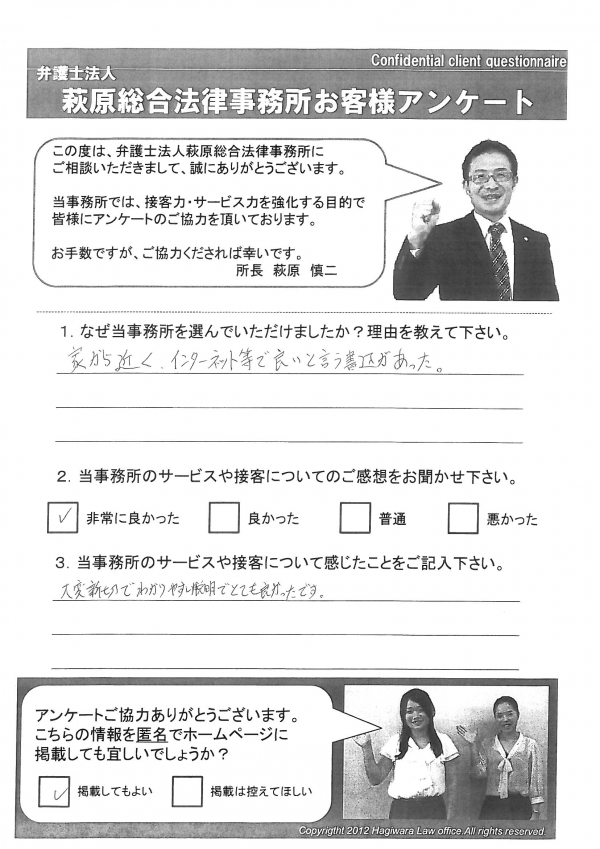 Confidential client questionnaire
弁護士法人
萩原総合法律事務所お客様アンケート
この度は、弁護士法人萩原総合法律事務所に
ご相談いただきまして、誠にありがとうございます。
当事務所では、接客力・サービス力を強化する目的で
皆様にアンケートのご協力を頂いております。
お手数ですが、ご協力くだされば幸いです。
所長 萩原 慎二
1. なぜ当事務所を選んでいただけましたか？理由を教えて下さい。
家から近く、インターネット等で良いと言う書込があった。
2. 当事務所のサービスや接客についてのご感想をお聞かせ下さい。
✓ 非常に良かった 良かった 普通 悪かった
3. 当事務所のサービスや接客について感じたことをご記入下さい。
大変親切でわかりやすい説明でとても良かったです。
アンケートご協力ありがとうございます。
こちらの情報を匿名でホームページに
掲載しても宜しいでしょうか？
✓ 掲載してもよい 掲載は控えてほしい
Copyrigtht 2012 Hagiwara Law office.All rights reserved.